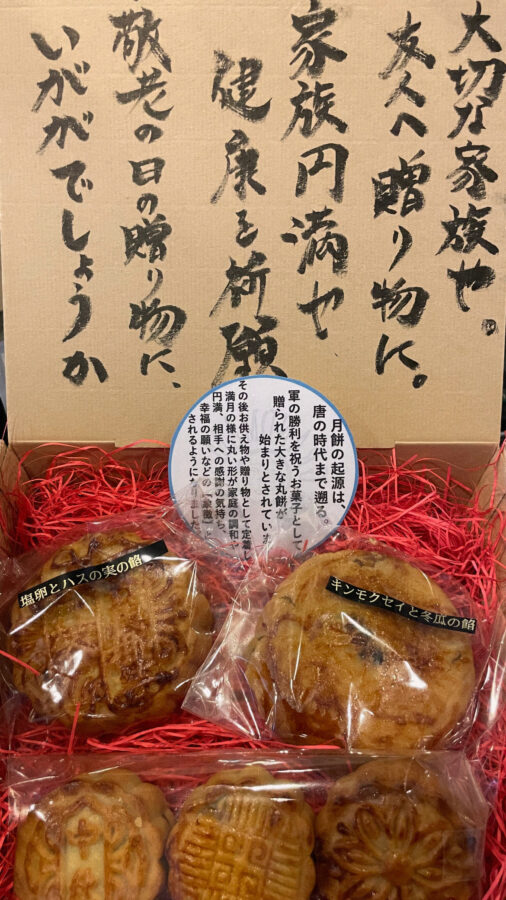 大切な家族や。
友人へ贈り物に。
家族円満や
健康を祈願
敬老の日の贈り物に、
いががでしょうか
月餅の起源は、
唐の時代まで遡る。
軍の勝利を祝うお菓子として
贈られた大きな丸餅が
始まりとされていま
その後お供え物や贈り物として定着し
満月の様に丸い形が家庭の調和や
円満、相手への感謝の気持ち、
幸福の願いなどの「象徴」と
されるようになりました
塩卵とハスの実の餡
キンモクセイと冬瓜の餡